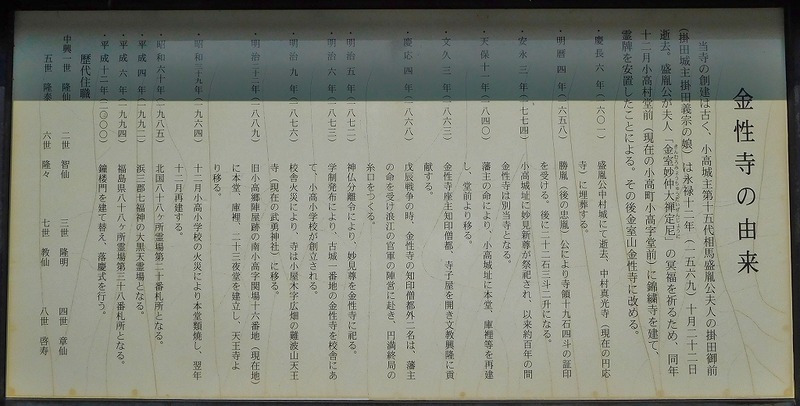 金性寺の由来
当寺の創建は古く、小高城主第十五代相馬盛胤公夫人の掛田御前
(掛田城主掛田義宗の娘)は永禄十二年(一五六九)十月二十二日
逝去。盛胤公が夫人「金室妙仲大禅定尼」の冥福を祈るため、同年
十二月小高村堂前(現在の小高町小高字堂前)に錦繍寺を建て、
霊牌を安置したことによる。その後金室山金性寺に改める。
・慶長 六 年(一六〇一) 盛胤公中村城にて逝去、中村真光寺(現在の円応
寺)に埋葬する。
・明暦 四 年(一六五八) 勝胤(後の忠胤)公により寺領十九石四斗の証印
を受ける。後に二十二石三斗二升になる。
・安永 三 年(一七七四) 小高城址に妙見新尊が祭祀され、以来約百年の間
金性寺は別当寺となる。
・天保十一年(一八四〇) 藩主の命により、小高城址に本堂、庫裡等を再建
し、堂前より移る。
・文久 三 年(一八六三) 金性寺座主知印僧都 寺子屋を開き文教興隆に貢
献する。
・慶応 四 年(一八六八) 戊辰戦争の時、金性寺の知印僧都外二名は、藩主
の命を受け浪江の官軍の陣営に赴き、円満終局の
糸口をつくる。
・明治 五 年(一八七二) 神仏分離令により、妙見尊を金性寺に祀る。
・明治 六 年(一八七三) 学制発布により、古城一番地の金性寺を校舎にあ
て、小高小学校が創立される。
・明治 九 年(一八七六) 校舎火災により、寺は小屋木字広畑の難波山天王
寺(現在の武勇神社)に移る。
・明治二十二年(一八八九) 旧小高郷陣屋跡の南小高字関場十六番地(現在地)
に本堂、庫裡、二十三夜堂を建立し、天王寺よ
り移る。
・昭和三十九年(一九六四) 十二月小高小学校の火災により本堂類焼し、翌年
十二月再建する。
・昭和六十年(一九八五) 北国八十八ヶ所霊場第二十番札所となる。
・平成 四 年(一九九二) 浜三郡七福神の大黒天霊場となる。
・平成 六 年(一九九四) 福島県八十八ヶ所霊場第三十八番札所となる。
・平成十二年(二〇〇〇) 鐘楼門を建て替え、落慶式を行う。
歴代住職
中興一世 隆仙 二世 智仙 三世 隆明 四世 章仙
五世 隆泰 六世 隆々 七世 教仙 八世 啓寿